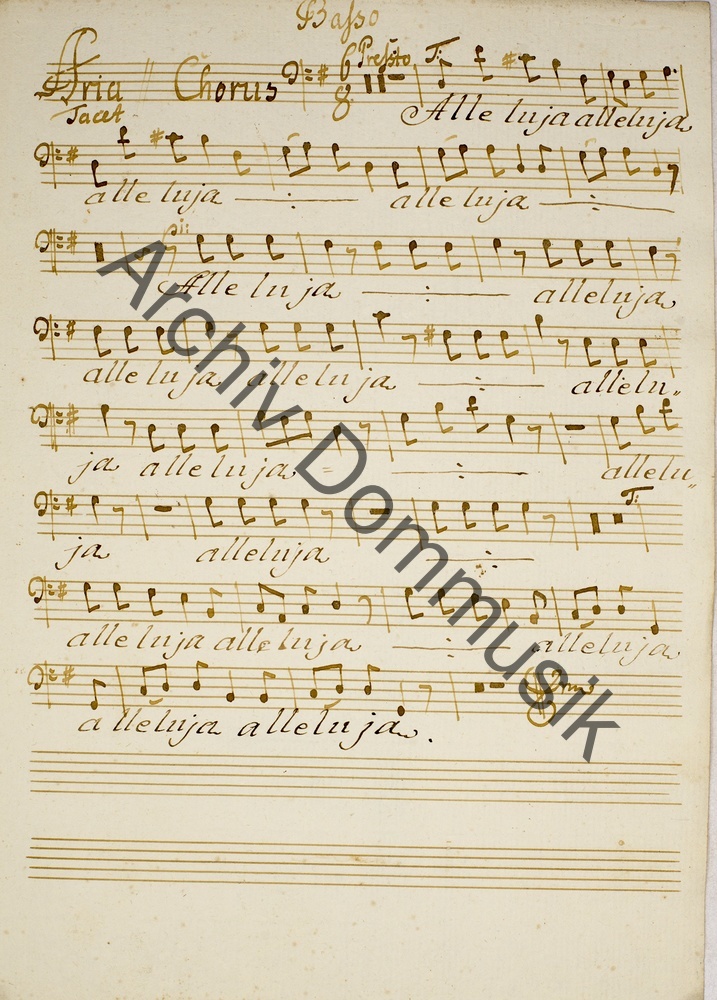 Basso
Aria Chorus 6 8 Presto T:
Tacet
Alleluja alleluja
alleluja alleluja
pi:
Alleluja alleluja
alleluja alleluja allelu„
ja alleluja allelu„
T:
ja alleluja
alleluja alleluja alleluja
alleluja alleluja.
Archiv Dommusik